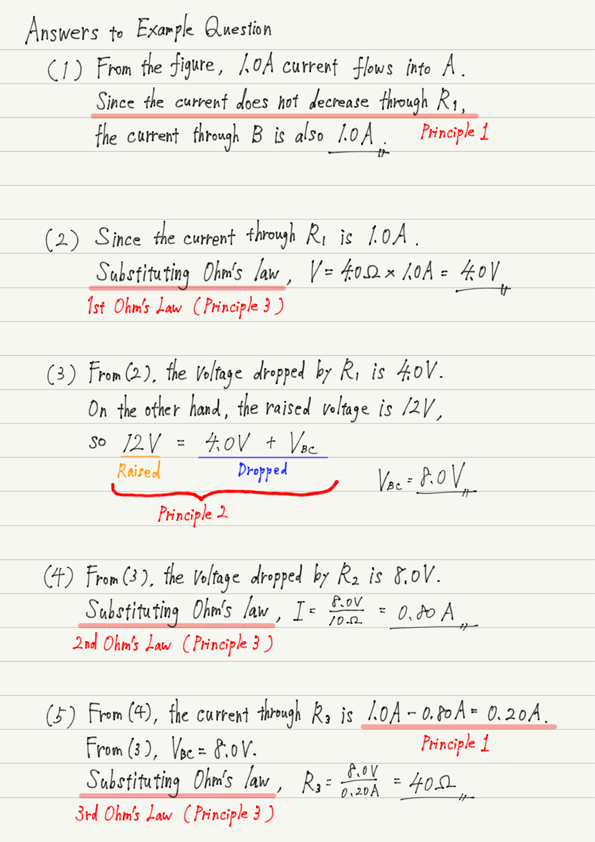 Answers to Example Question
(1) From the figure, 1.0A current flows into A.
Since the current does not decrease through R₁,
the current through B is also 1.0A.
Principle 1
(2) Since the current through R₁ is 1.0A.
Substituting Ohm's law, V = 4.0Ω × 1.0A = 4.0V
1st Ohm's Law (Principle 3)
(3) From (2), the voltage dropped by R₁ is 4.0V.
On the other hand, the raised voltage is 12V,
so 12V = 4.0V + V_BC
Raised Dropped
V_BC = 8.0V
Principle 2
(4) From (3), the voltage dropped by R₂ is 8.0V.
Substituting Ohm's law, I = 8.0V/10Ω = 0.80A
2nd Ohm's Law (Principle 3)
(5) From (4), the current through R₃ is 1.0A - 0.80A = 0.20A.
Principle 1
From (3), V_BC = 8.0V.
Substituting Ohm's law, R₃ = 8.0V/0.20A = 40Ω
3rd Ohm's Law (Principle 3)